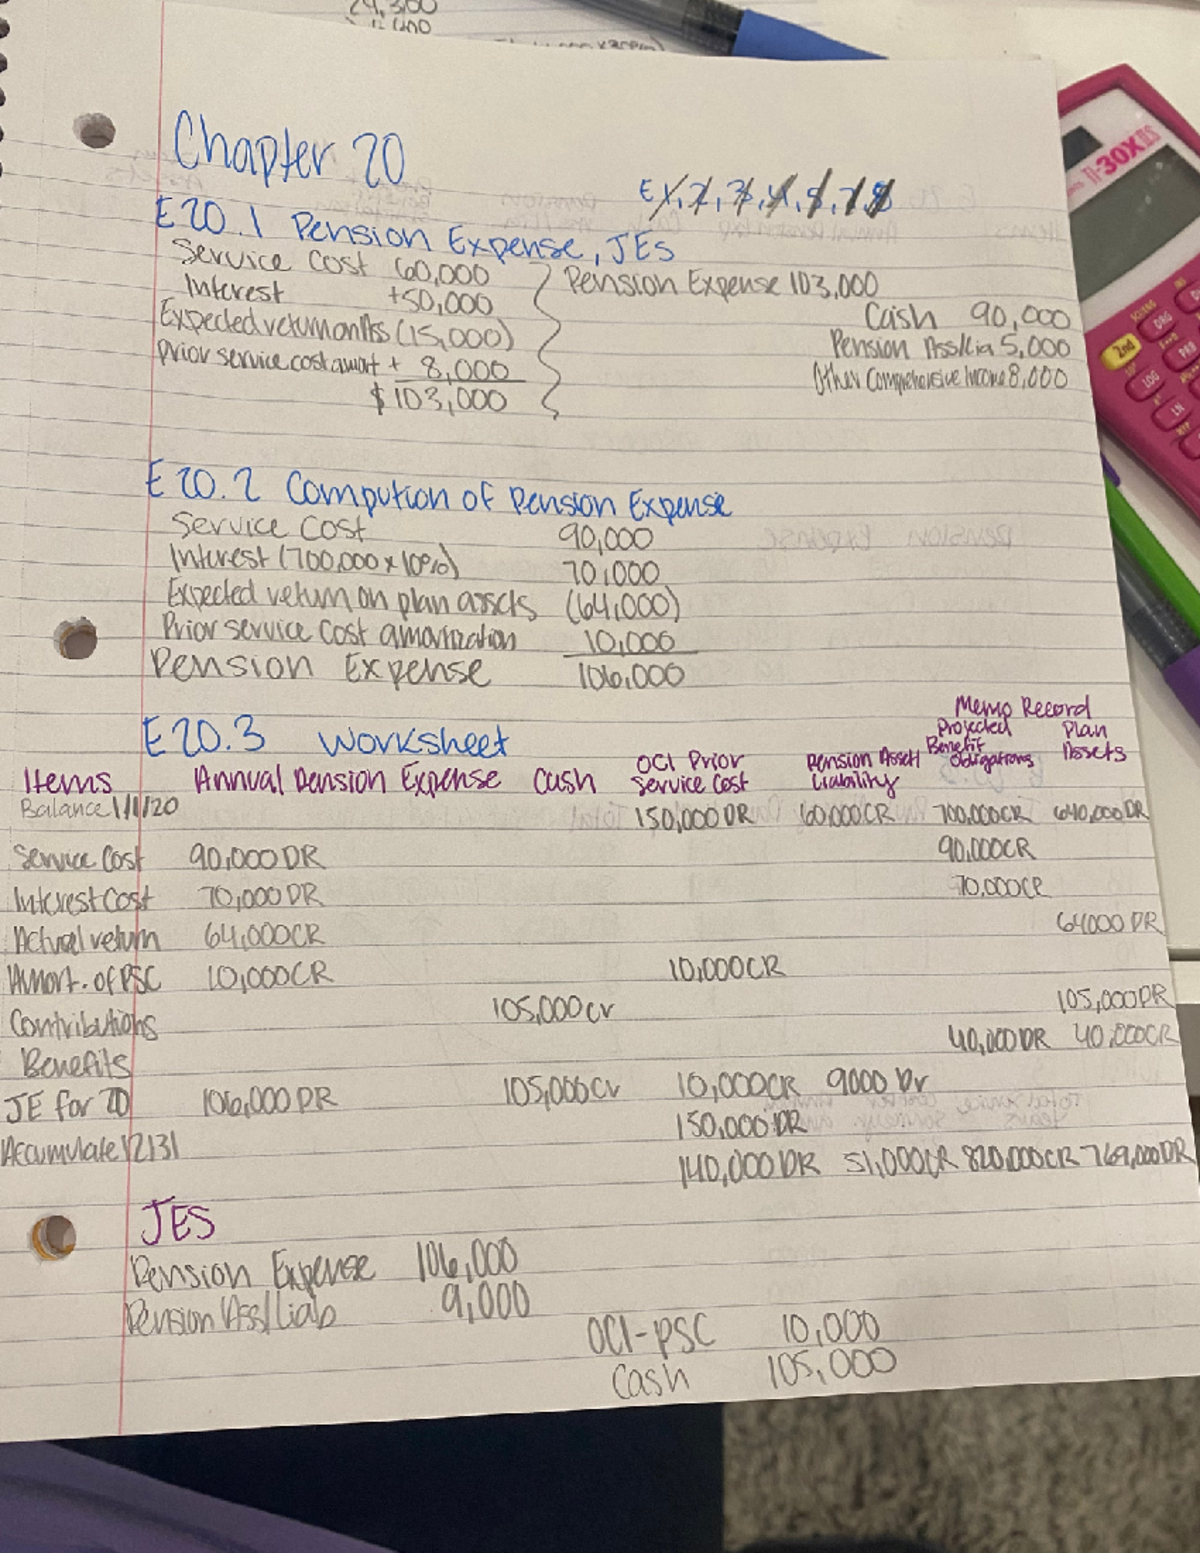 24,300
Chapter 20
E 1, 2, 3, 4, 5, 7, 8
E20.1 Pension Expense, JEs
Service Cost 60,000
Interest +50,000
Expected return on Ass (15,000)
Prior service cost amort + 8,000
$103,000
Pension Expense 103,000
Cash 90,000
Pension Ass/Lia 5,000
Other Comprehensive Income 8,000
E20.2 Compution of Pension Expense
Service Cost 90,000
Interest (700,000 x 10%) 70,000
Expected return on plan assets (64,000)
Prior service cost amorization 10,000
Pension Expense 106,000
E20.3 Worksheet
Memo Record
Items Annual Pension Expense Cash OCI Prior Service Cost Pension Asset/ Liability Projected Benefit Obligations Plan Assets
Balance 1/1/20 150,000 DR 60,000 CR 700,000 CR 640,000 DR
Service Cost 90,000 DR 90,000 CR
Interest Cost 70,000 DR 70,000 CR
Actual return 64,000 CR 64000 DR
Amort. of PSC 10,000 CR 10,000 CR
Contributions 105,000 cr 105,000 DR
Benefits 40,000 DR 40,000 CR
JE for 20 106,000 DR 105,000 Cr 10,000 CR 9000 Dr
Accumulate 12/31 150,000 DR
140,000 DR 51,000 CR 820,000 CR 769,000 DR
JES
Pension Expense 106,000
Pension Ass/Liab 9,000
OCI-PSC 10,000
Cash 105,000
TI-30X IIS
2nd
DRG
PRB
LOG
LN